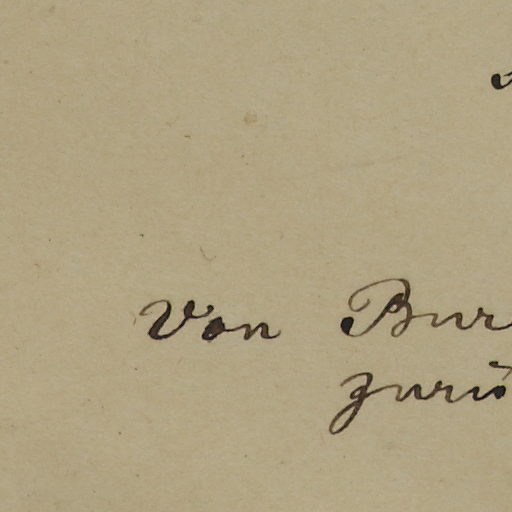 Von Bur
zurü